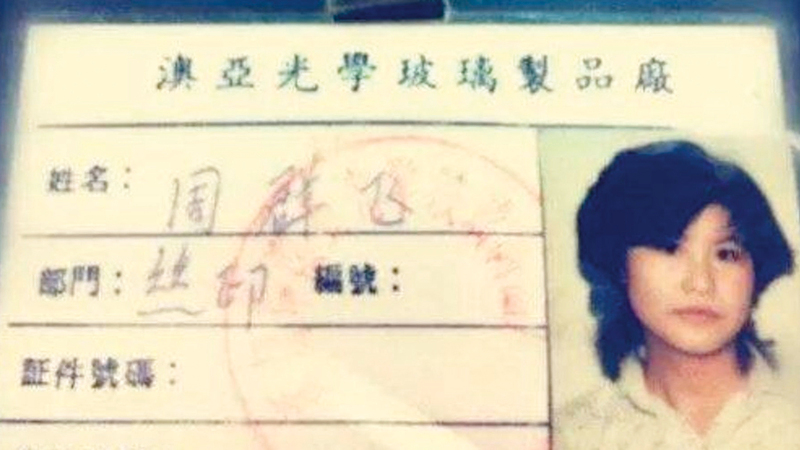 澳亞光學玻璃製品廠
姓名：周群飞
部門：丝印 編號：
証件號碼：